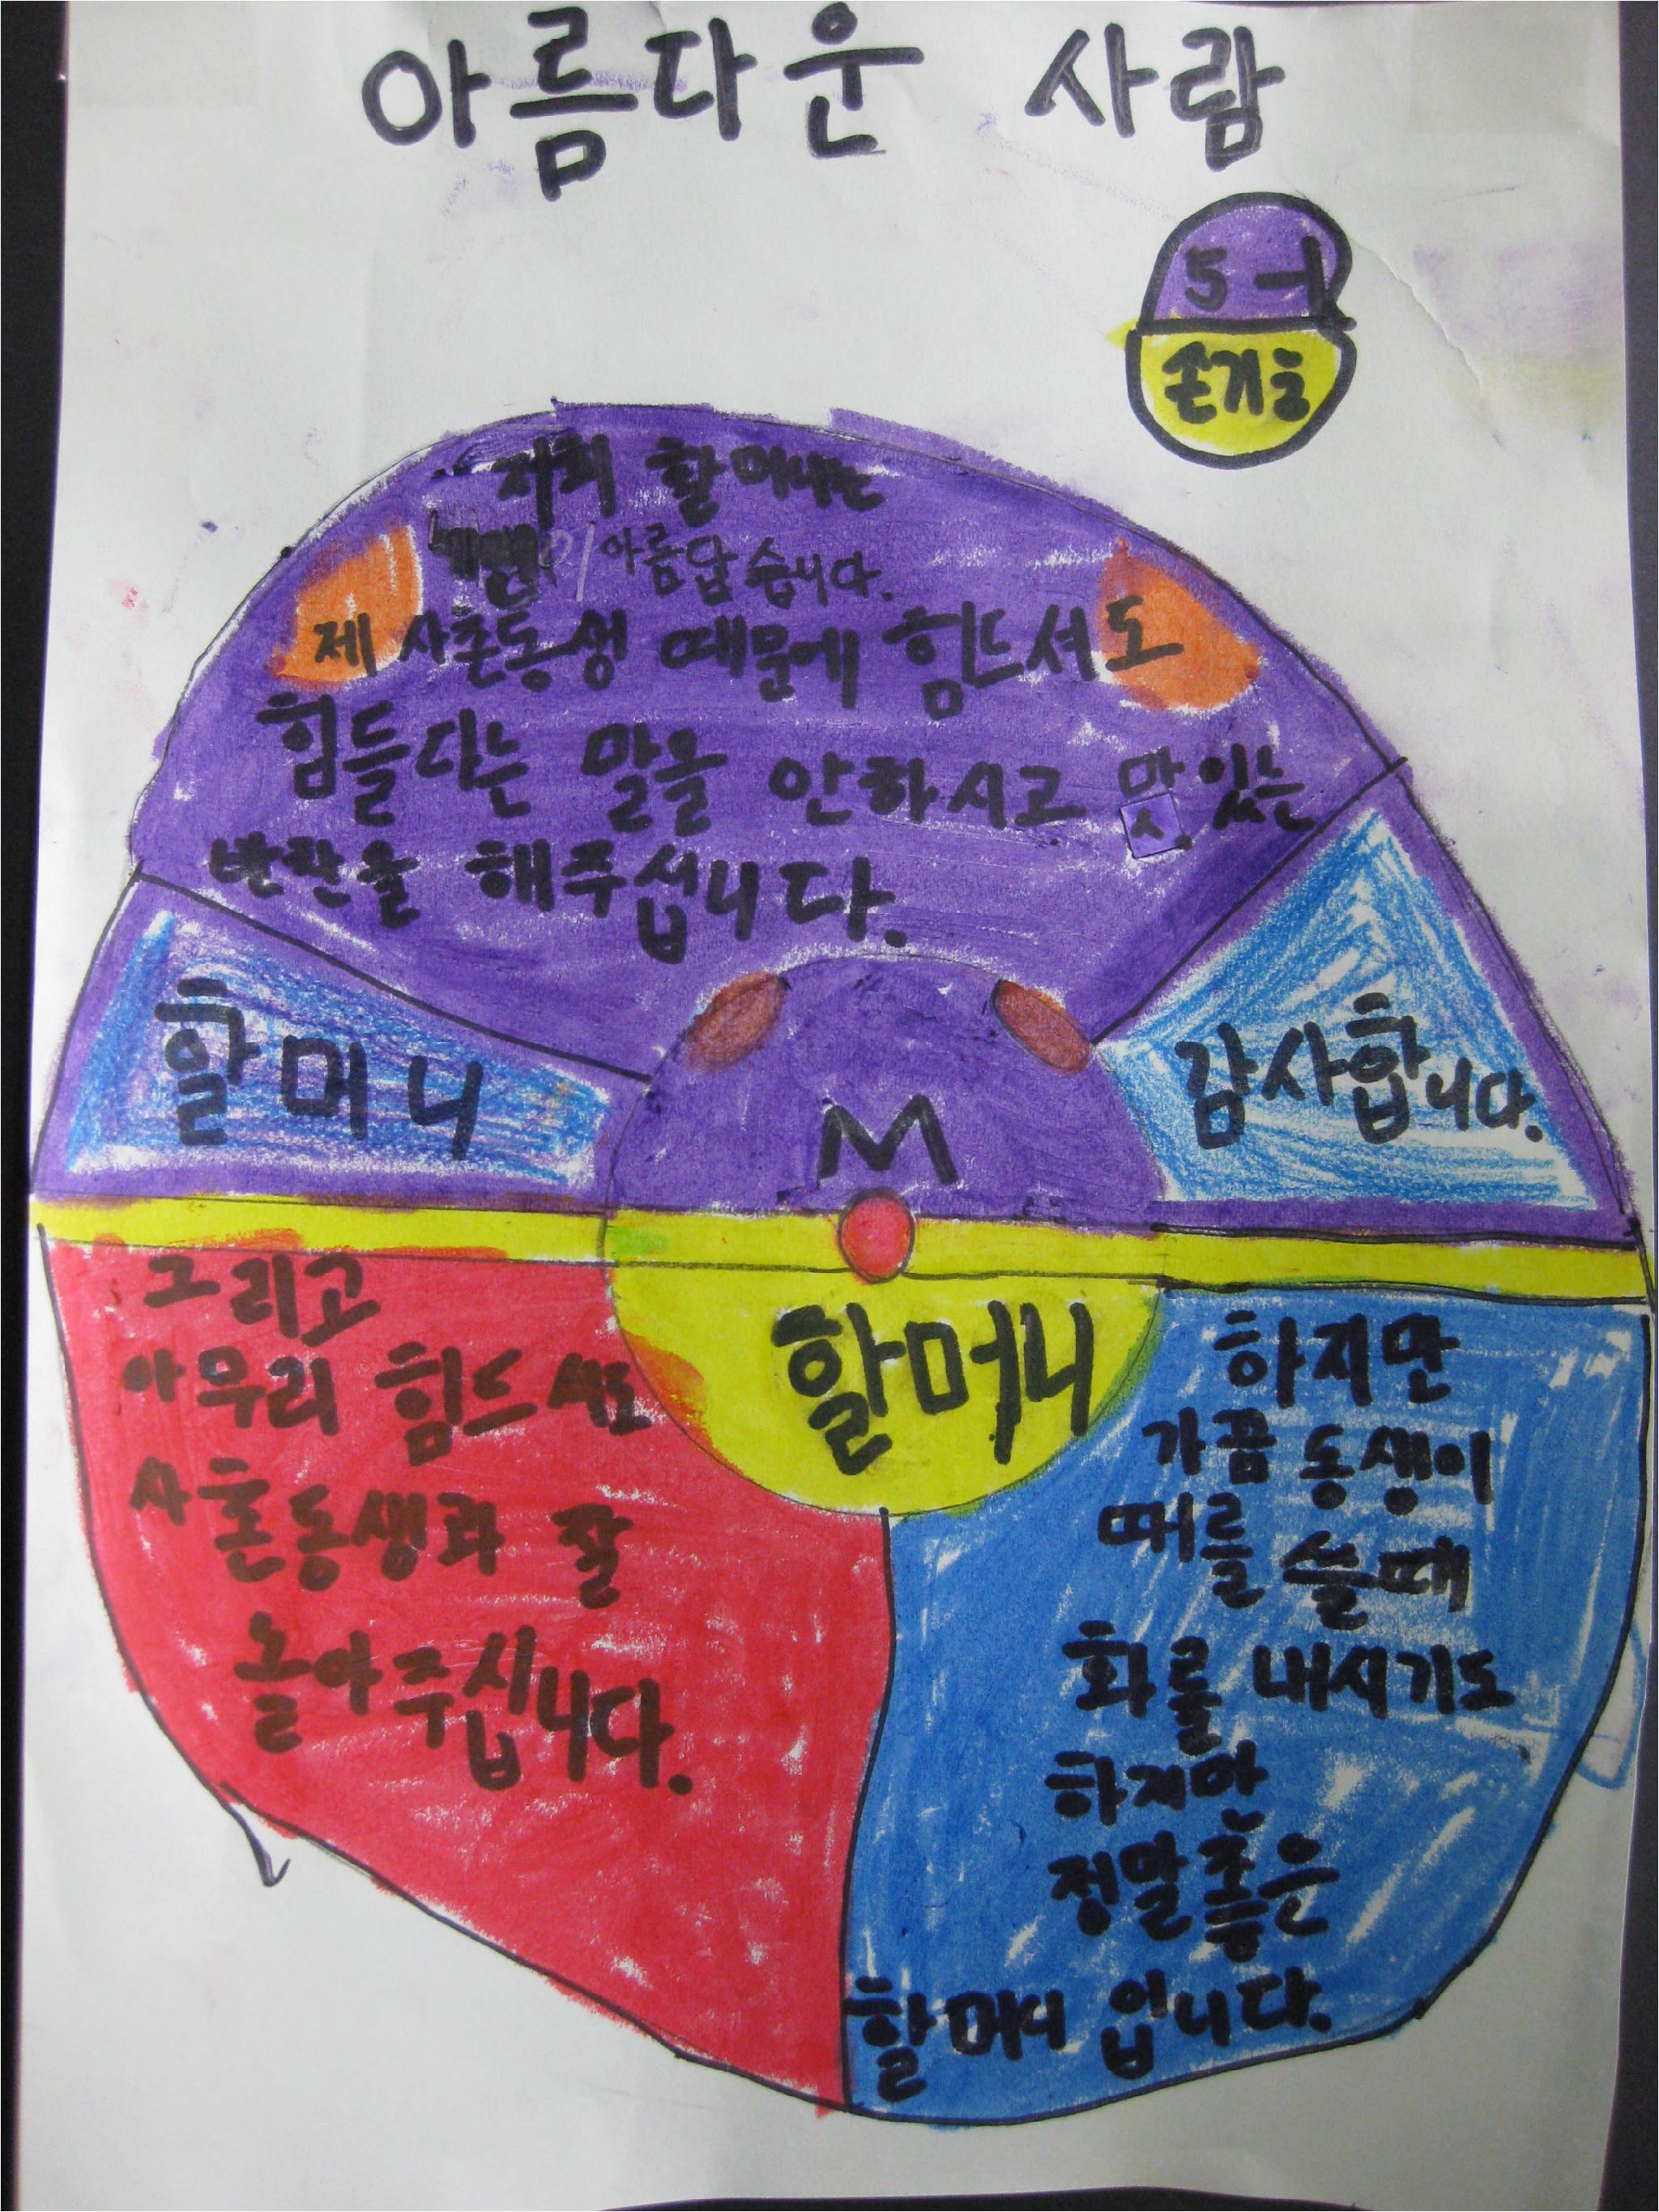 아름다운 사람
5-1
손기흔
저희 할머니는
이 아름답습니다.
제 사촌동생 때문에 힘드셔도
힘들다는 말을 안하시고 맛있는
반찬을 해주섭니다.
할머니
감사합니다.
M
할머니
그리고
아무리 힘드셔도
사촌동생과 잘
놀아주십니다.
하지만
가끔 동생이
떼를 쓸때
화를 내시기도
하지만
정말 좋은
할머니 입니다.